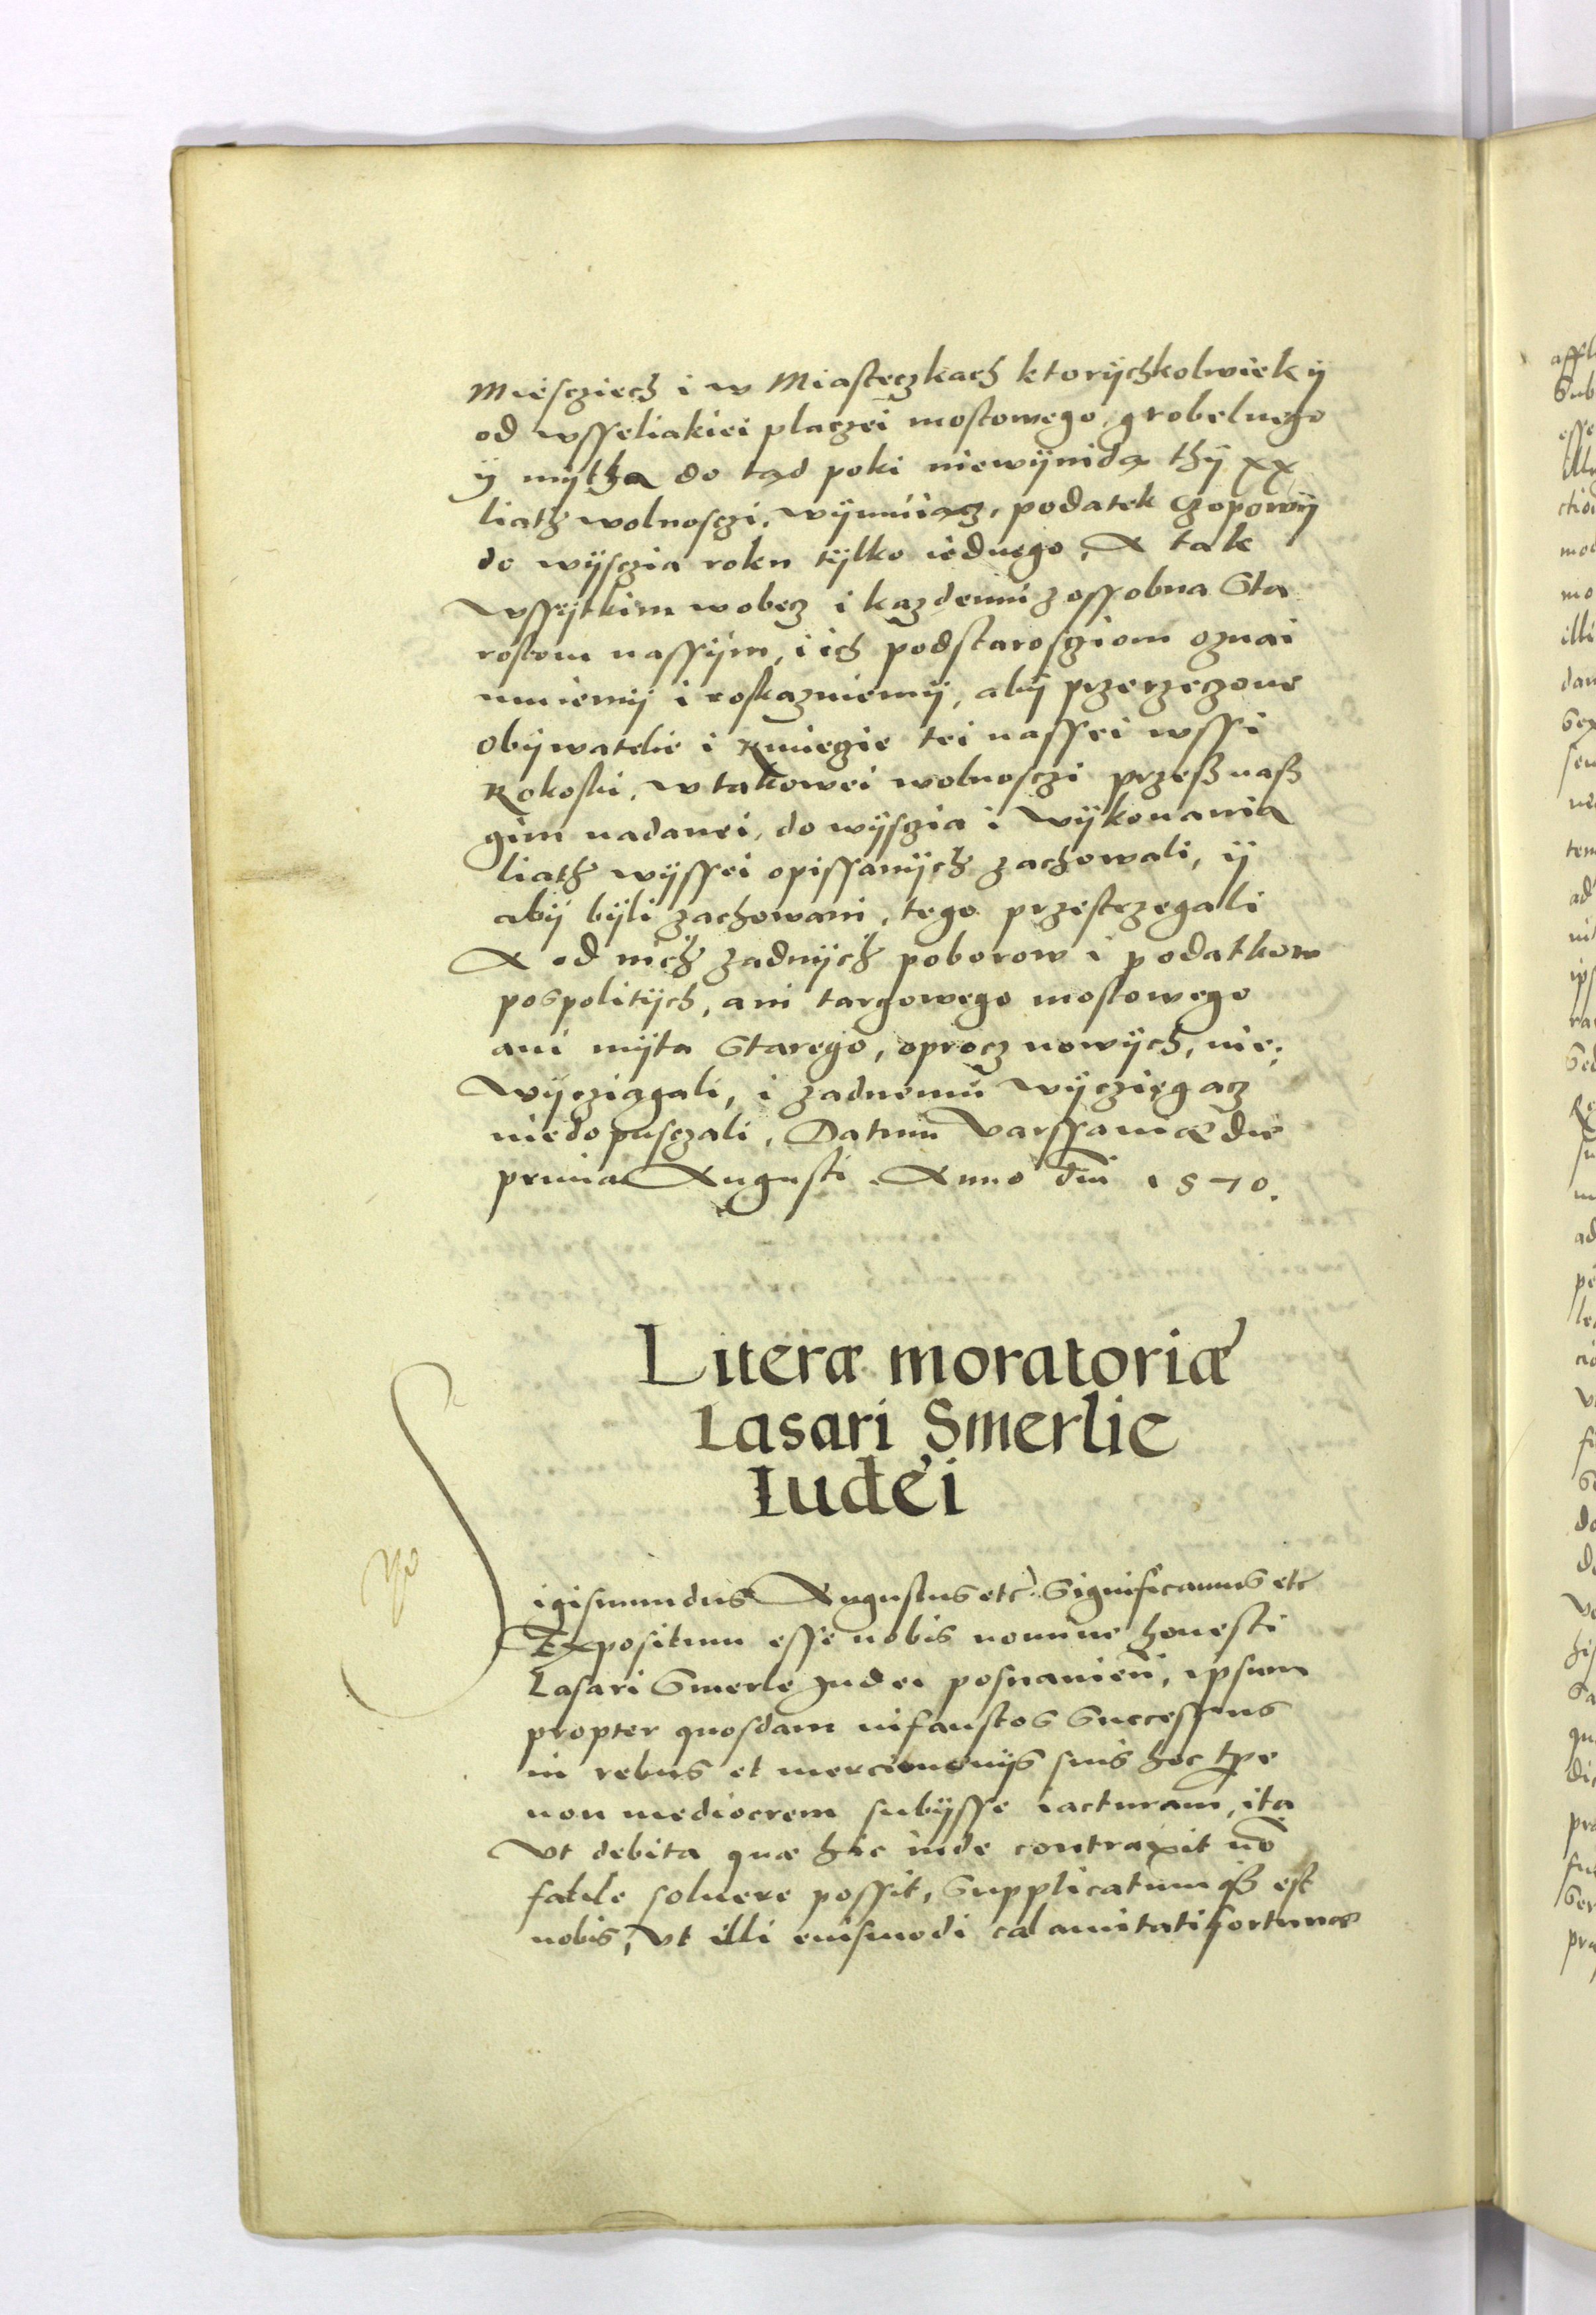 Miescziech i w Miasteczkach ktorÿchkolwiek ÿ
od wsseliakiei placzei mostowego, grobelnego
ÿ mÿtha do tąd poki niewÿnidą thÿ xx
liath wolnosczi, wÿmuiącz, podatek czopowÿ
do wÿsczia roku tÿlko iednego, A tak
wssÿtkim wobecz i kazdemu zossobna Sta
rostom nassÿm, i ich podstarosziom oznai
muiemÿ i roskazuiemÿ, abÿ przerzeczone
obÿwatelie i kmiecie tei nassei wssi
Rokoski, w takowei wolnosczi przesz nasz
gim nadanei, do wÿsczia i wÿkonania
liath wÿssei opissanÿch zachowali, ÿ
abÿ bÿli zachowani, tego przestrzegali
A od nich zadnÿch poborow i podatkow
pospolitÿch, ani targowego mostowego
ani mÿta starego, oprocz nowÿch, nie,
wÿcziągali, i zadnemu wÿczięgacz
niedopusczali, Datum Varssaviæ die
prima Augusti. Anno dni 1570.
Literæ moratoriæ
Lasari Smerlie
Iudei
Sigismundus Augustus etc Significamus etc
Expositum esse nobis nomine honesti
Lasari Smerle Judei posnanien, ipsum
propter quosdam infaustos successus
in rebus et mercimonijs suis hoc tpe
non mediocrem subijsse iacturam, ita
vt debita quæ hic inde contraxit no
facile soluere possit, Supplicatumq3 est
nobis, vt illi euismodi calamitati fortunæ